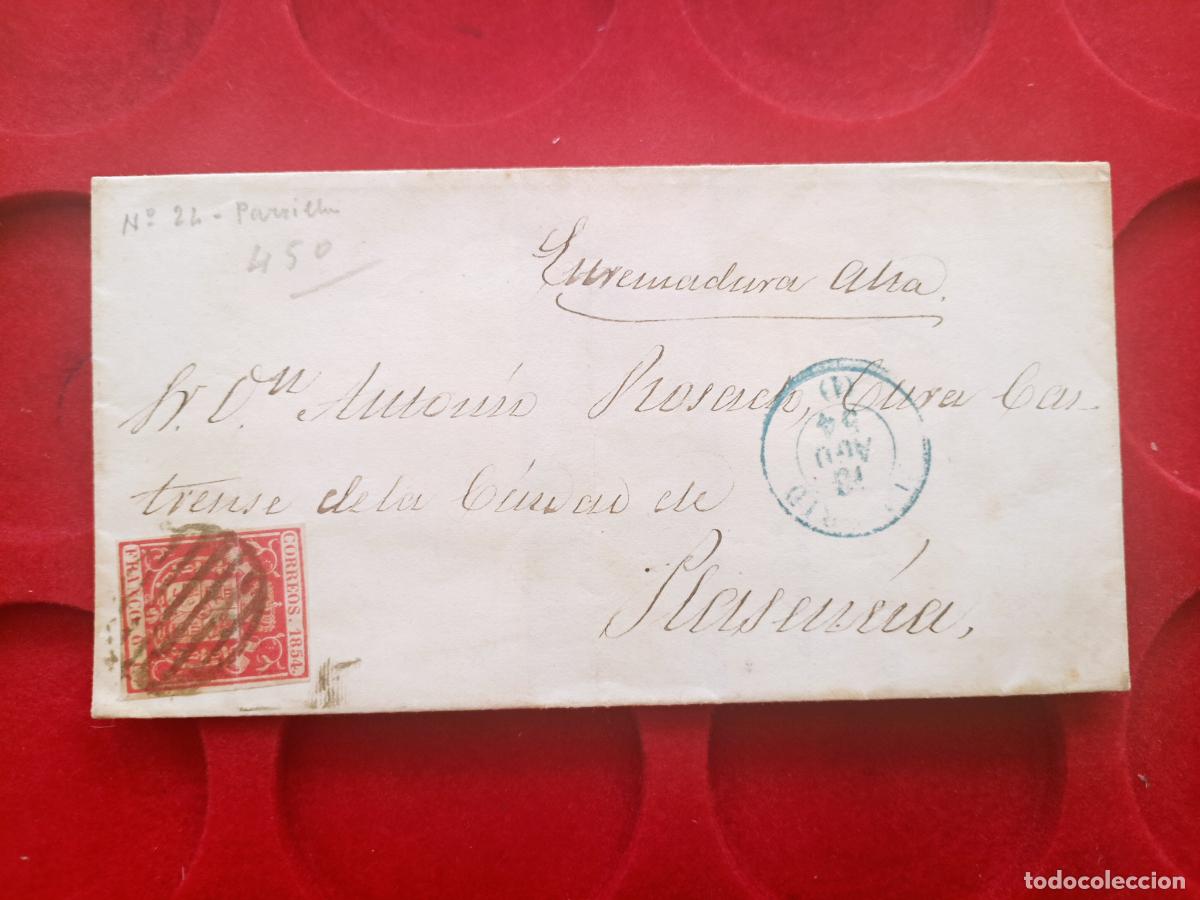 Nº 24 - Parrilla
450
Extremadura Alta.
Sr. Dn Antonio Rosado, Cura Cas-
trense de la Ciudad de
Plasencia,
CORREOS. 1854.
FRANCO.
(1)
54
AGO
RID
todocoleccion